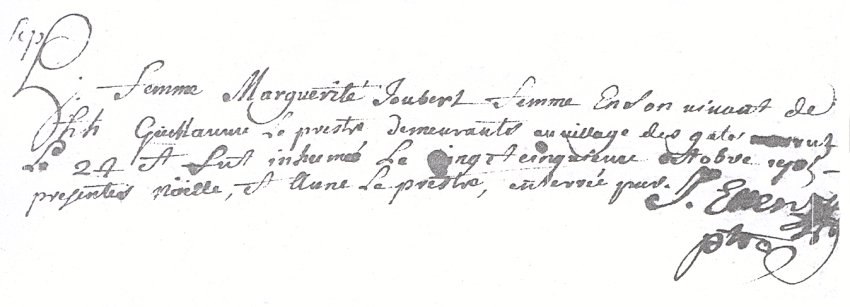 sep
h. femme Marguerite Joubert femme En son vivant de
Guillaume Le prestre demeurants au village des gats mourut
Le 24 et fut inhumée Le vingt cinquieme octobre 1705
presentes Noëlle, et Anne Le prestre, enterrée par J. Even
ptre